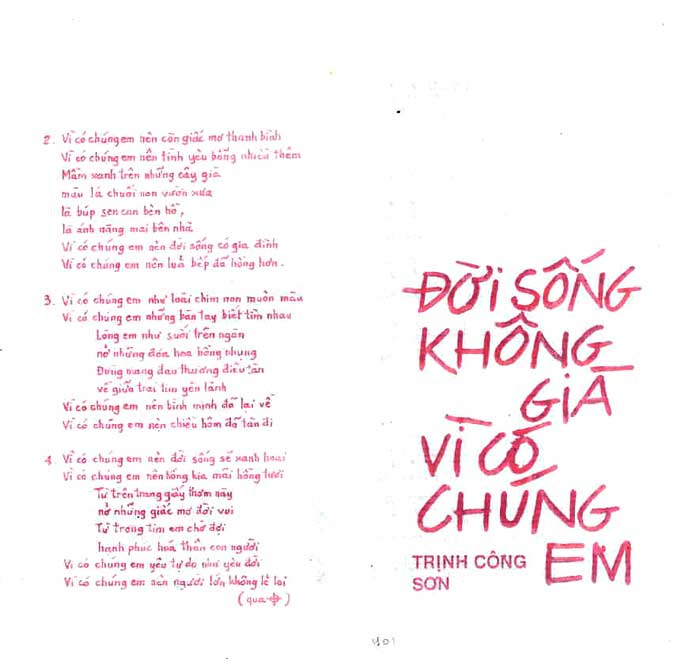 2. Vì có chúng em nên còn giấc mơ thanh bình
Vì có chúng em nên tình yêu bỗng nhiều thêm
Mầm xanh trên những cây già
màu lá chuối non vườn xưa
là búp sen con bên hồ,
là ánh nắng mai bên nhà
Vì có chúng em nên đời sống có gia đình
Vì có chúng em nên lửa bếp đã hồng hơn.
3. Vì có chúng em như loài chim non muôn màu
Vì có chúng em những bàn tay biết tìm nhau
Lòng em như suối trên ngàn
nở những đóa hoa hồng nhung
Đừng mang đau thương điêu tàn
về giữa trái tim yên lành
Vì có chúng em nên bình minh đã lại về
Vì có chúng em nên chiều hôm đã tàn đi
4. Vì có chúng em nên đời sống sẽ xanh hoài
Vì có chúng em nên hồng kia mãi hồng tươi
Từ trên trang giấy thơm này
nở những giấc mơ đời vui
Từ trong tim em chờ đợi
hạnh phúc hóa thân con người
Vì có chúng em yêu tự do như yêu đời
Vì có chúng em nên người lớn không lẻ loi
(qua)
ĐỜI SỐNG
KHÔNG
GIÀ
VÌ CÓ
CHÚNG
EM
TRỊNH CÔNG
SƠN